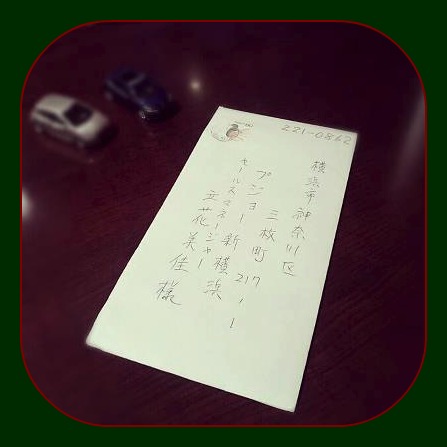 221-0862
横浜市神奈川区
三枚町217-1
プジョー新横浜
セールスマネージャー
立花美佳様